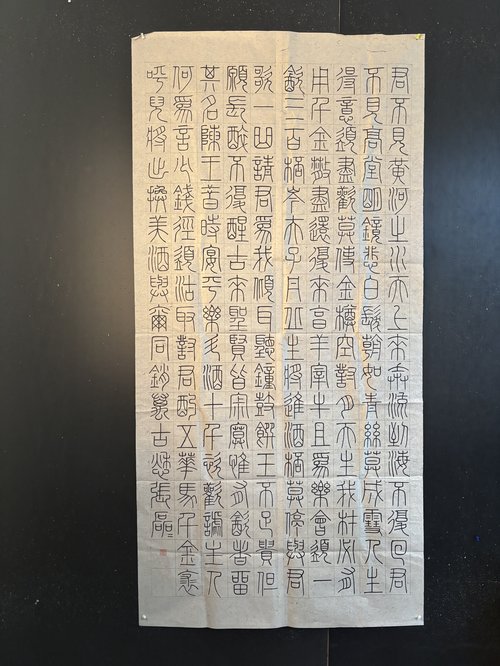 君不見黃河之水天上來奔流到海不復回君
不見高堂明鏡悲白髮朝如青絲莫成雪人生
得意須盡歡莫使金樽空對月天生我材必有
用千金散盡還復來亯羊宰牛且為樂會須一
飲三百桮岑夫子丹丘生將進酒桮莫停與君
歌一曲請君為我傾耳聽鐘鼓饌玉不足貴但
願長醉不復醒古來聖賢皆寂寞惟有飲者留
其名陳王昔時宴平樂斗酒十千恣歡謔主人
何為言少錢徑須沽取對君酌五華馬千金裘
呼兒將出換美酒與爾同銷萬古愁張磊